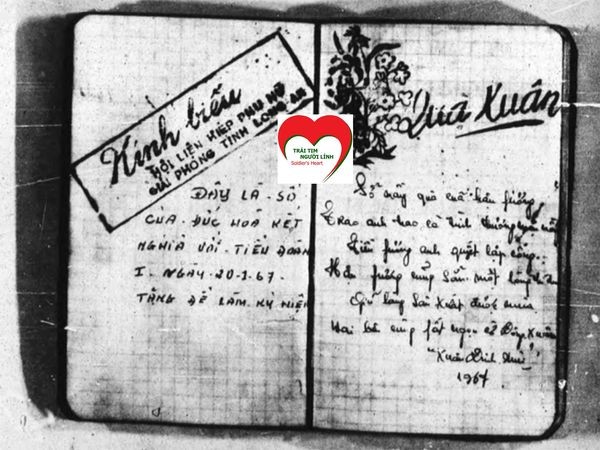 Kính biếu
HỘI LIÊN HIỆP PHỤ NỮ
GIẢI PHÓNG TỈNH LONG AN
ĐÂY LÀ SỔ
CỦA ĐỨC HOÀ KẾT
NGHĨA VỚI TIỂU ĐOÀN
I. NGÀY 20.1.67.
TẶNG ĐỂ LÀM KỶ NIỆM
TRÁI TIM
NGƯỜI LÍNH
Soldier's Heart
Quà Xuân
Sổ nầy quà của hậu phương
Trao anh cả tình thương
Tiền phương anh quyết lập công
Hậu phương cũng sẵn một lòng
Sản Xuất được mùa
Hai bên cùng
"Xuân Đinh Mùi"
1967